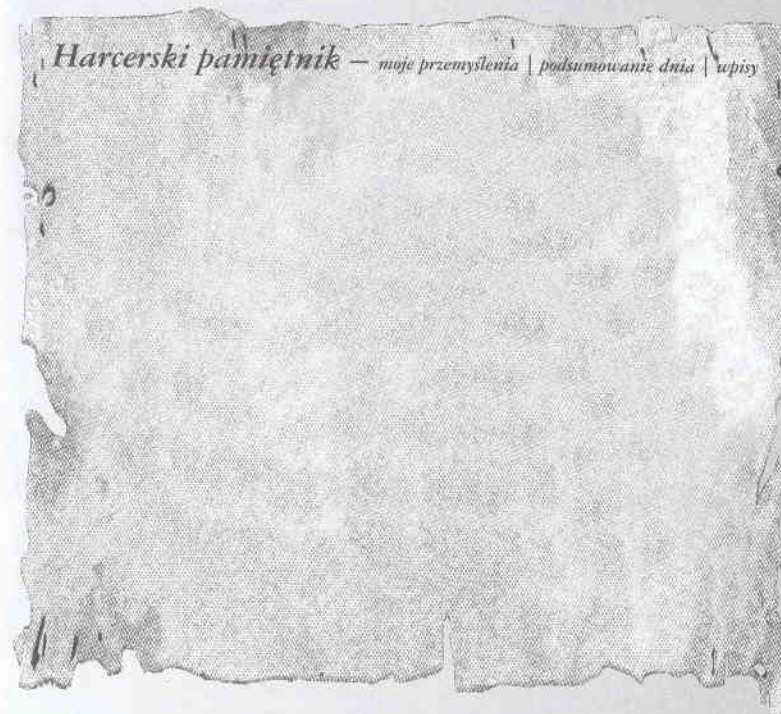 Harcerski pamiętnik – moje przemyślenia | podsumowanie dnia | wpisy